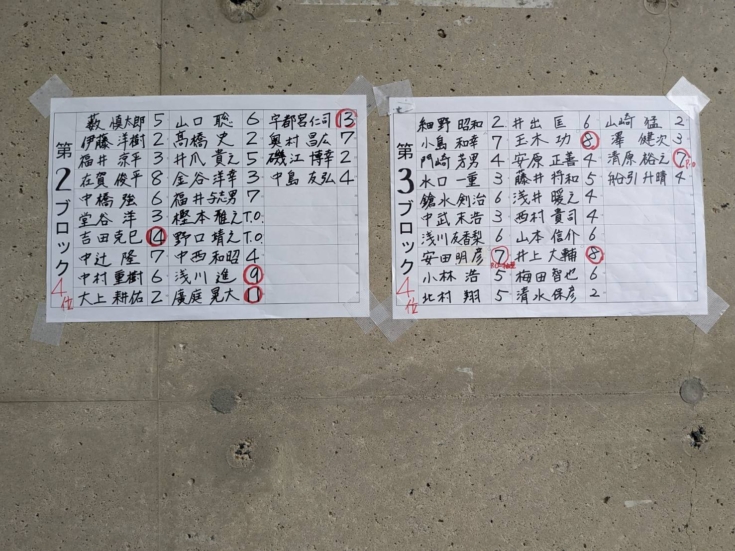 第2ブロック
4位
藪 慎太郎 5
伊藤 洋樹 2
福井 宗平 3
在賀 俊平 8
中橋 強 6
堂谷 洋 3
吉田克巳 14
中辻 隆 7
中村 重樹 6
大上 耕佑 2
山口 聡 6
髙橋 史 2
井爪 貴之 5
金谷 洋幸 3
福井与志男 7
樫本 雅之 T.O.
野口 靖之 T.O.
中西 和昭 4
浅川 進 9
廣庭 晃大
宇都呂仁司 13
奥村 昌広 7
磯江 博幸 2
中島 友弘 4
第3ブロック
4位
細野 昭和 2
小島 和幸 7
門崎 芳男 4
水口 一重 3
鎗水 剣治 6
中武 末浩 3
浅川友香梨 6
安田 明彦 7
小林 浩 5
北村 翔 5
井出 匡 6
玉木 功 8
安原 正善 4
藤井 将和 5
浅井 暖之 4
西村 貴司 4
山本 信介 6
井上 大輔 8
梅田 智也 6
清水 保彦 2
山崎 猛 2
澤 健次 3
清原 裕之 7
船引 升晴 4